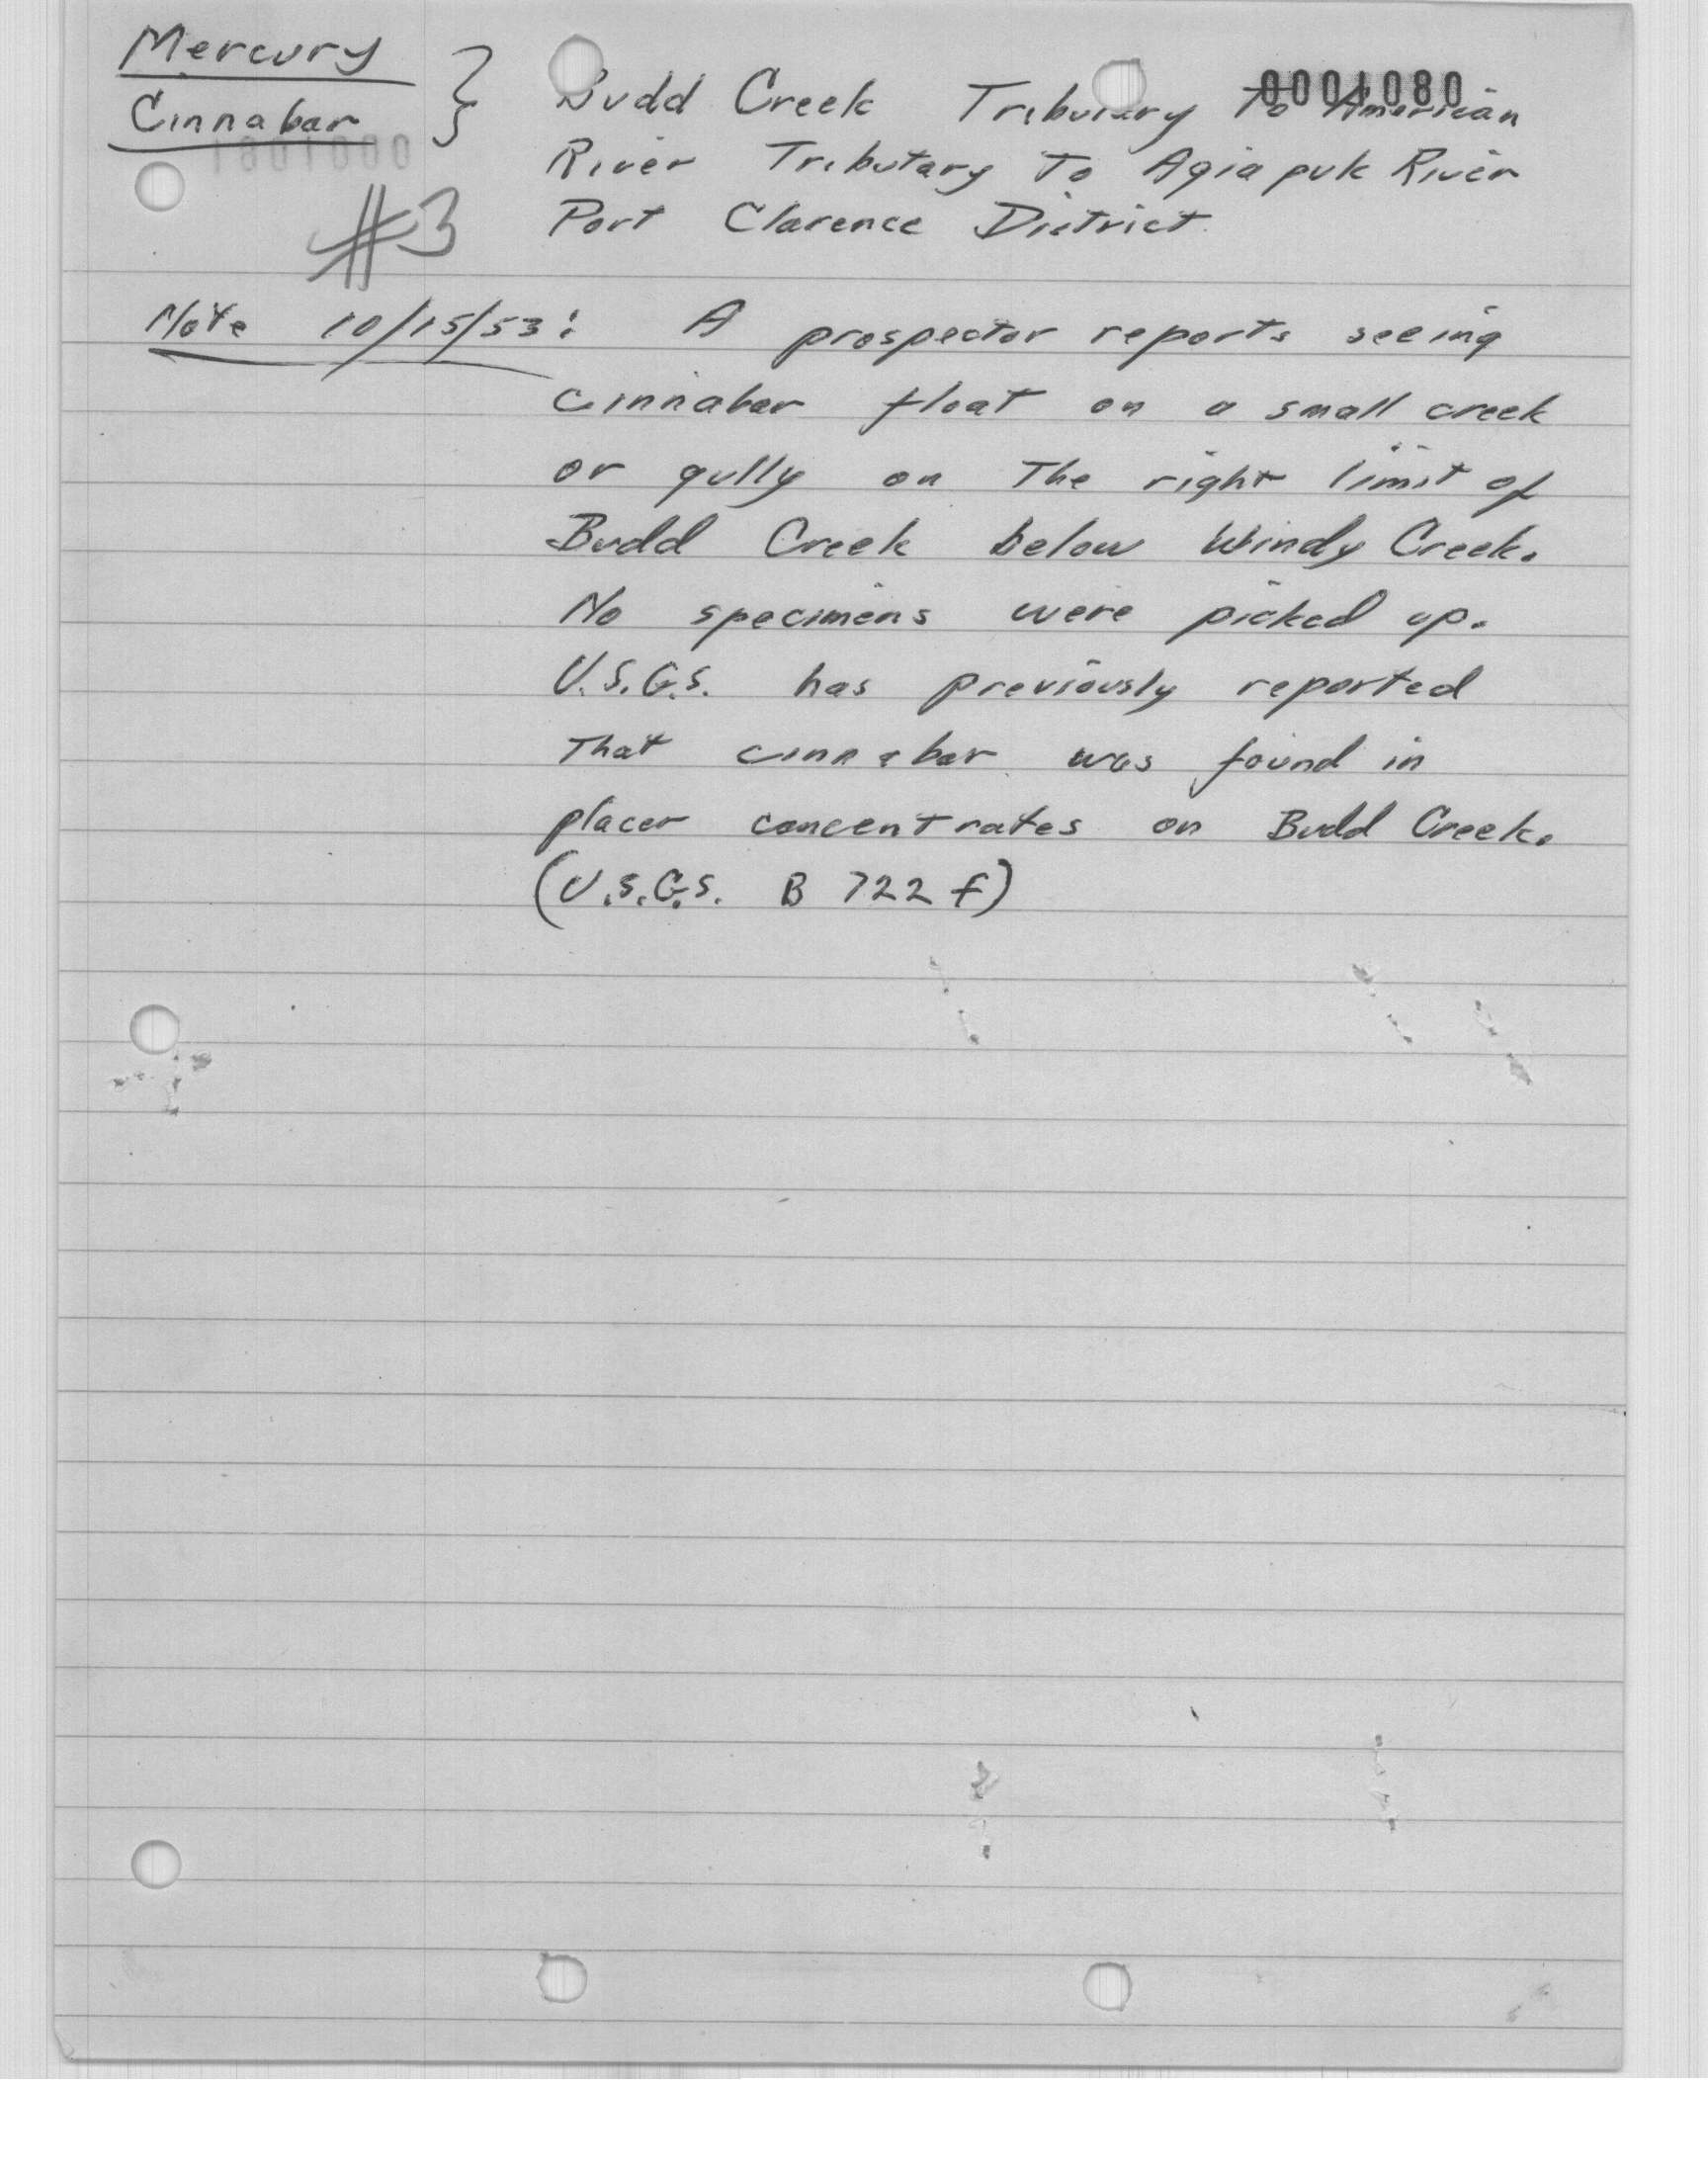 Mercury
Cinnabar
#3
0001080
Budd Creek Tributary To American
River Tributary To Agiapuk River
Port Clarence District
Note 10/15/53: A prospector reports seeing
cinnabar float on a small creek
or gully on The right limit of
Budd Creek below Windy Creek.
No specimens were picked up.
U.S.G.S. has previously reported
That cinnabar was found in
placer concentrates on Budd Creek.
(U.S.G.S. B 722 F)